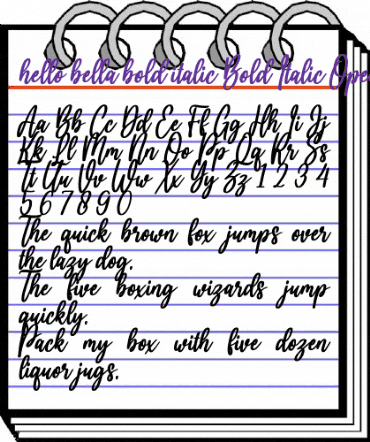 hello bella bold italic Bold Italic Ope
Aa Bb Cc Dd Ee Ff Gg Hh Ii Jj
Kk Ll Mm Nn Oo Pp Qq Rr Ss
Tt Uu Vv Ww Xx Yy Zz 1 2 3 4
5 6 7 8 9 0
The quick brown fox jumps over
the lazy dog.
The five boxing wizards jump
quickly.
Pack my box with five dozen
liquor jugs.